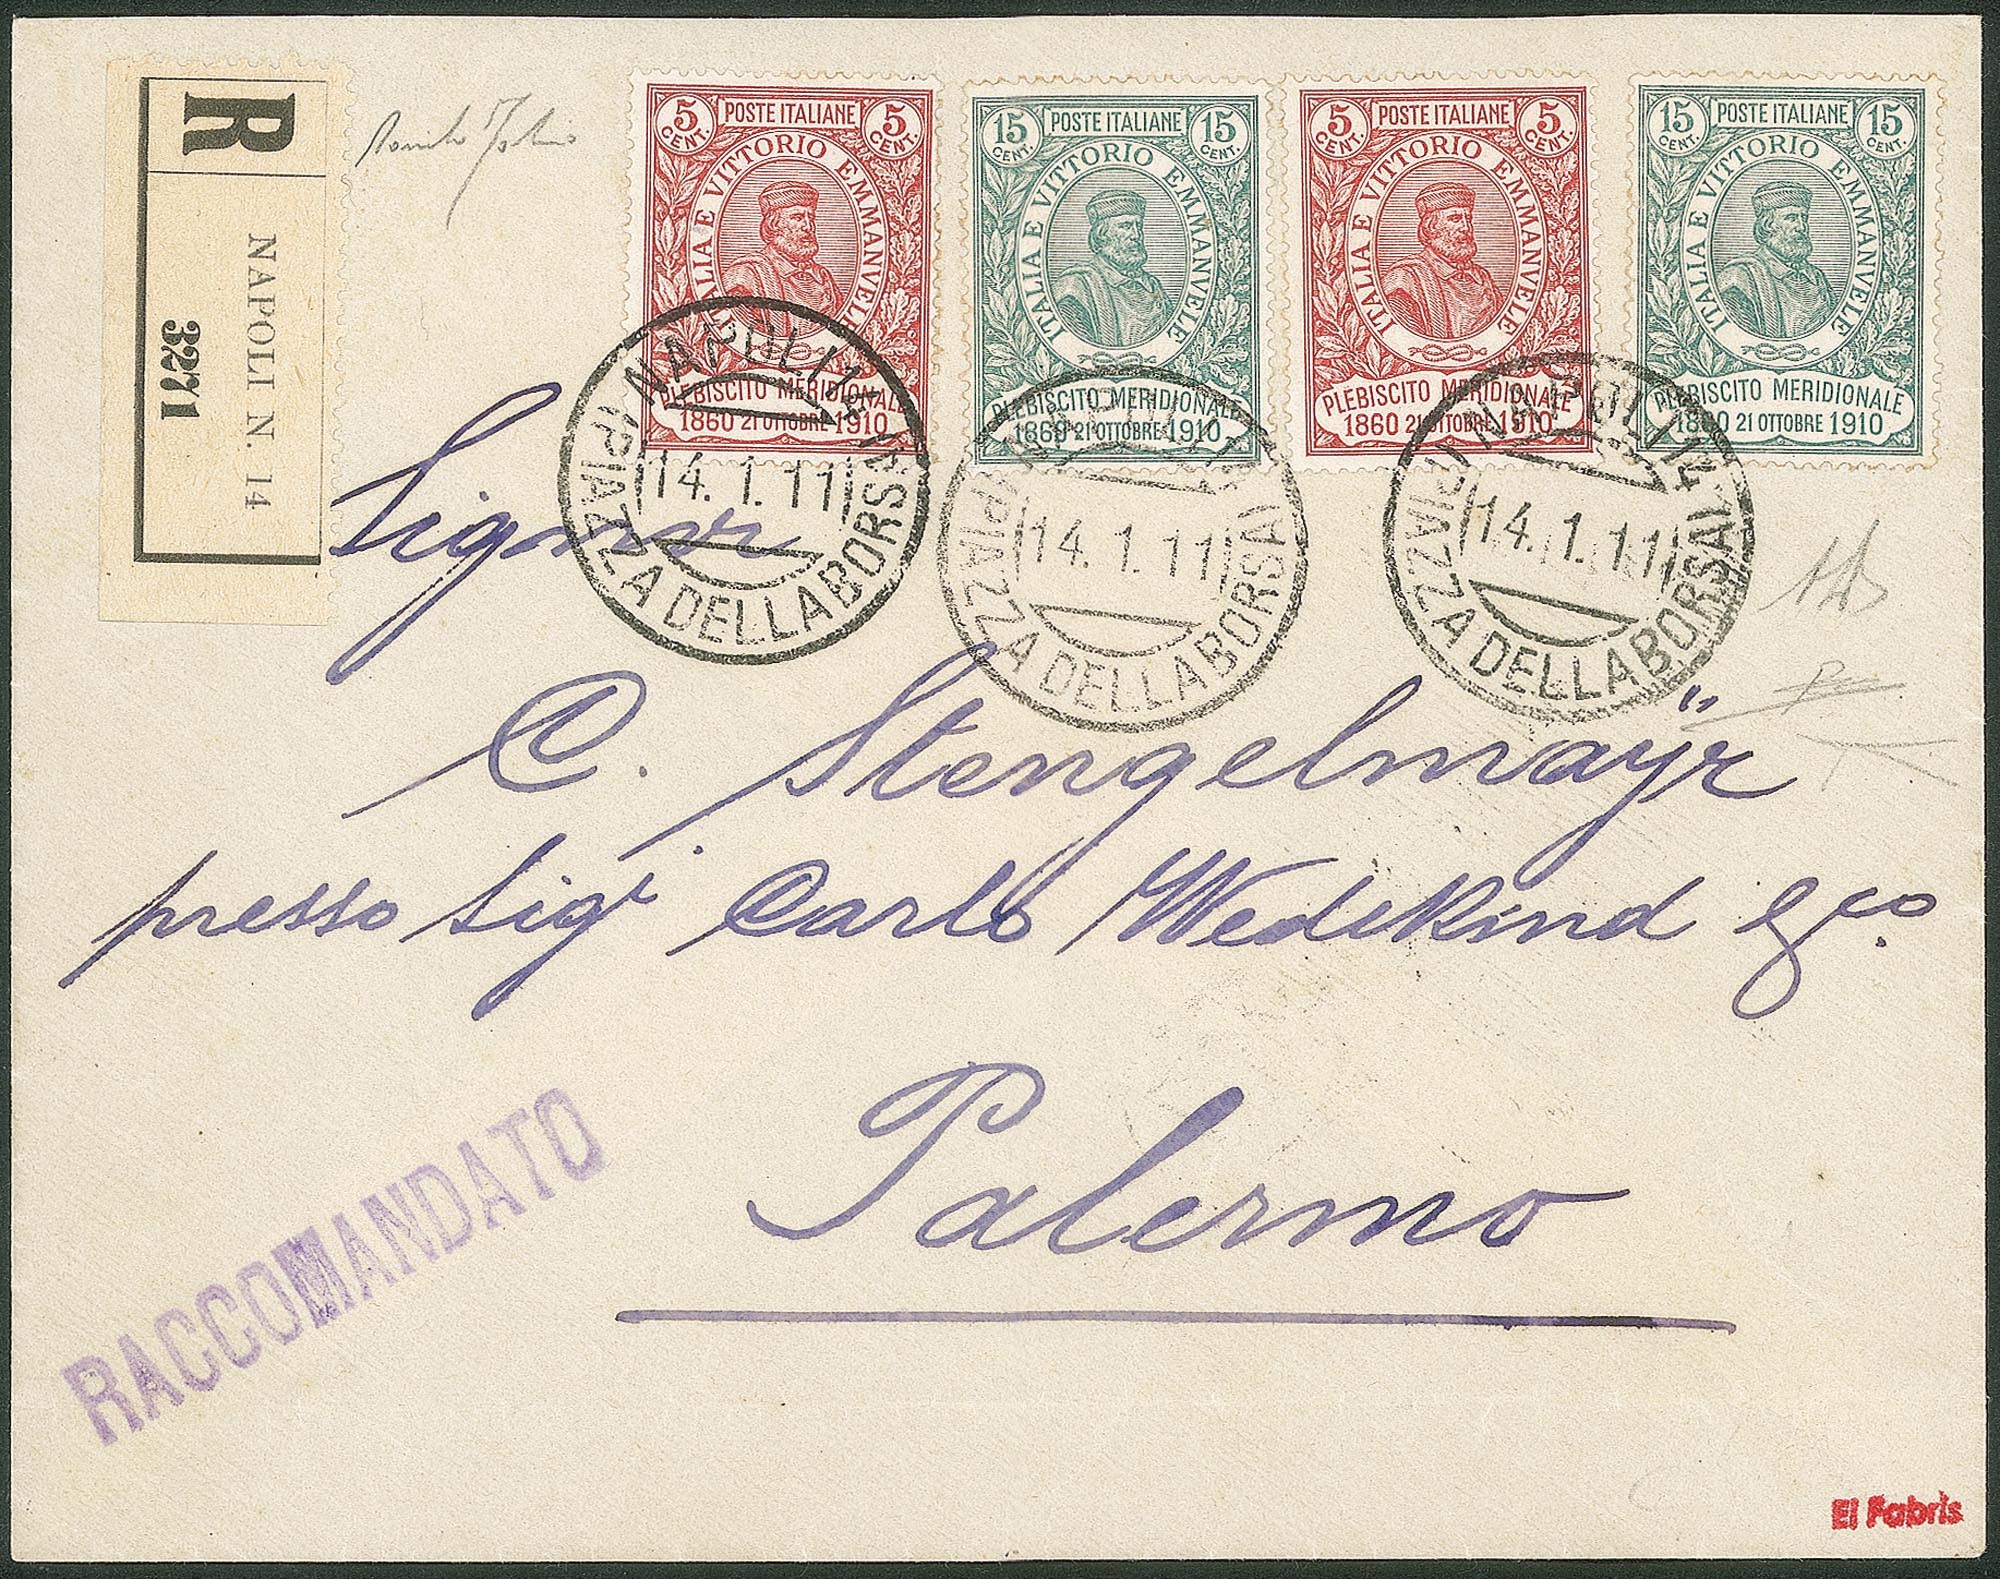 R
NAPOLI N. 14
3271
5 CENT. POSTE ITALIANE 5 CENT.
ITALIA E VITTORIO EMMANVELE
PLEBISCITO MERIDIONALE
1860 21 OTTOBRE 1910
15 CENT. POSTE ITALIANE 15 CENT.
ITALIA E VITTORIO EMMANVELE
PLEBISCITO MERIDIONALE
1860 21 OTTOBRE 1910
5 CENT. POSTE ITALIANE 5 CENT.
ITALIA E VITTORIO EMMANVELE
PLEBISCITO MERIDIONALE
1860 21 OTTOBRE 1910
15 CENT. POSTE ITALIANE 15 CENT.
ITALIA E VITTORIO EMMANVELE
PLEBISCITO MERIDIONALE
1860 21 OTTOBRE 1910
NAPOLI 14
14.1.11
(PIAZZA DELLA BORSA)
NAPOLI 14
14.1.11
(PIAZZA DELLA BORSA)
NAPOLI 14
14.1.11
(PIAZZA DELLA BORSA)
Signor
C. Stengelmaÿr
presso Sigri Carlo Wedekind & Co.
Palermo
RACCOMANDATO
El Fabris